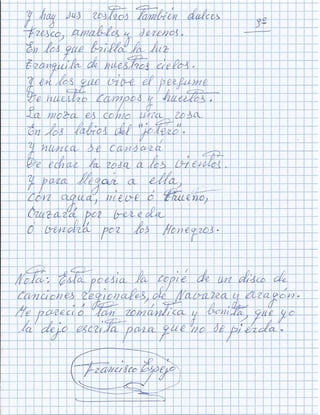 Y hay sus rostros también dulces
3ª
Fresco, amables y serenos.
En los que brilla la luz
tranquila de nuestros cielos.
Y en los que vive el perfume
De nuestro campos y huertos.
La moza es como una rosa
En los labios del "jotero".
Y nunca se cansara
De echar la rosa a los vientos.
Y para llegar a ella,
Con agua, nieve o trueno,
Cruzará por vereda
O vendrá por los Monegros.
Nota: Esta poesia la copié de un disco de
canciones regionales, de Navarra y aragón.
Me pareció tan romántica y bonita, que yo
la dejo escrita para que no se pierda.
Francisco Espejo